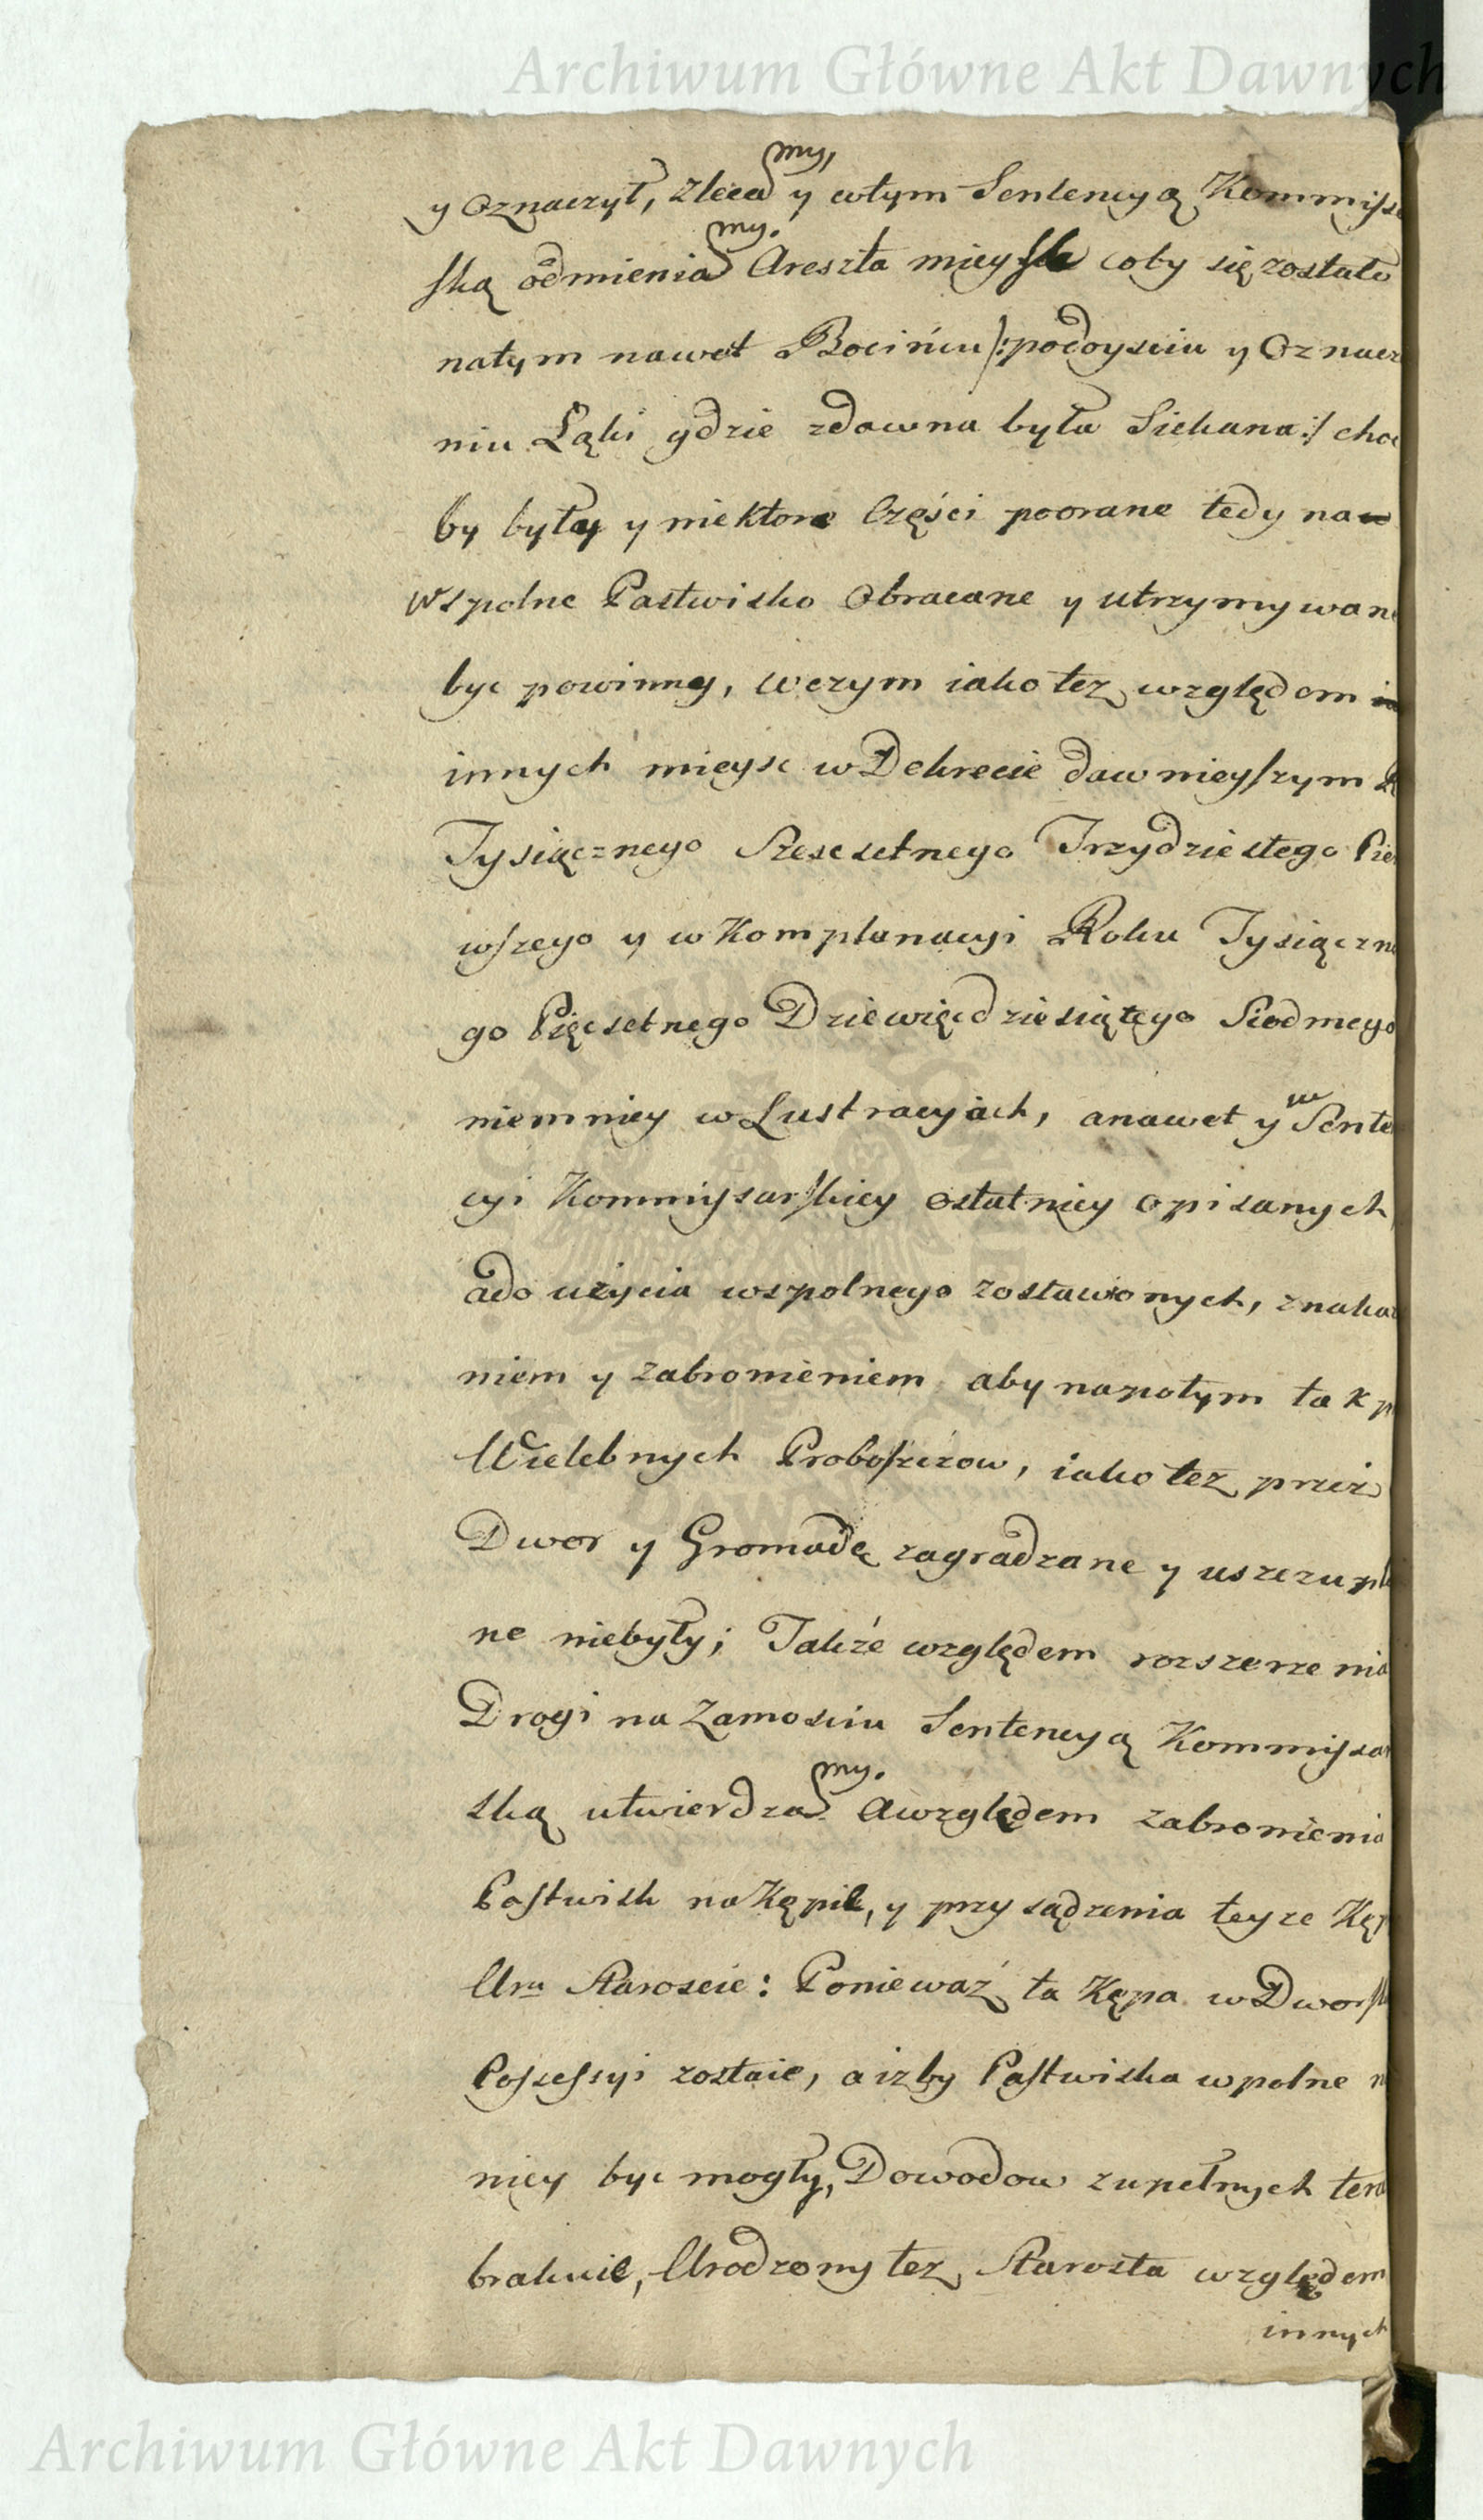 Archiwum Główne Akt Dawnych
y Oznaczył, zlecamy, y wtym Sentencyą Kommissar
ską odmieniamy. Areszta mieysc coby się zostało
natym nawet Bocińcu /: podoysciu y Oznacze
niu Łąki gdzie zdawna była Siekana :/ choc
by były y niektore Części poorane tedy na
wspolne Pastwisko Obracane y utrzymywane
byc powinny, wczym iako tez względem
innych mieysc w Dekrecie dawnieyszym R
Tysiącznego Szescsetnego Trzydziestego Pier
wszego y w Komplanacyi Roku Tysiączne
go Pięcsetnego Dziewięcdziesiątego Siodmego
niemniey w Lustracyiach, anawet y w Senten
cyi Kommissarskiey ostatniey opisanych
ado użycia wspolnego zostawionych, znakaza
niem y zabronieniem aby napotym tak p
Wielebnych Proboszczow, iako tez przez
Dwor y Gromadę zagradzane y uszczupla
ne niebyły; Także względem rozszerzenia
Drogi na Zamosciu Sentencyą Kommissar
ską utwierdzamy. Awzględem zabronienia
Pastwisk na Kępie, y przysądzenia teyze Kępy
Urm Staroscie: Ponieważ ta Kępa w Dworsk
Possessyi zostaie, aizby Pastwiska wpolne n
niey byc mogły, Dowodow zupełnych teraz
brakuie, Urodzony tez Starosta względem
innych
Archiwum Główne Akt Dawnych